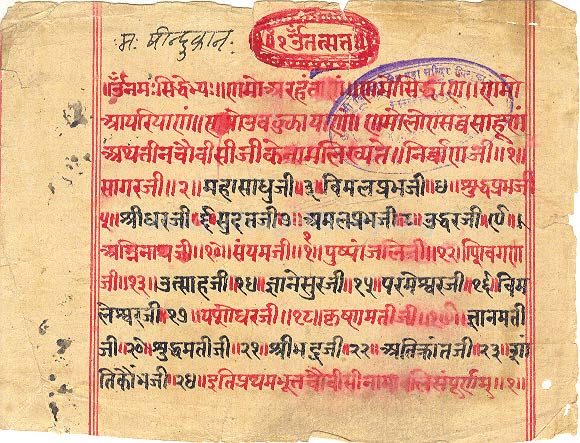 ॥ॐतत्सत॥
॥ॐनमःसिद्धेभ्यः॥णमोअरहंताणं॥णमोसिद्धाणं॥णमो
आयरियाणं॥णमोउवज्झायाणं॥णमोलोएसव्वसाहूणं
अथतीनचौवीसीजीकेनामलिख्यते॥निर्वाणजी॥१॥
सागरजी॥२॥महासाधुजी३विमलप्रभजी॥४॥श्रुद्धप्रभजी
५॥श्रीधरजी६सुदत्तजी७अमलप्रभजी८उद्धरजी९॥
अग्निनाथजी॥१०॥संयमजी॥११पुष्पांजलिजी॥१२॥शिवगण
जी॥१३॥उत्साहजी॥१४॥ज्ञानेसुरजी॥१५॥परमेश्वरजी॥१६॥विम
लेश्वरजी॥१७॥यशोधरजी॥१८॥कृष्णमतीजी॥१९॥ज्ञानमती
जी॥२०॥श्रुद्धमतीजी॥२१॥श्रीभद्रजी॥२२॥अतिक्रांतजी॥२३॥शां
तिकौंभजी॥२४॥इतिप्रथमभूतचौवीसीनामावलिसंपूर्णम्॥१॥